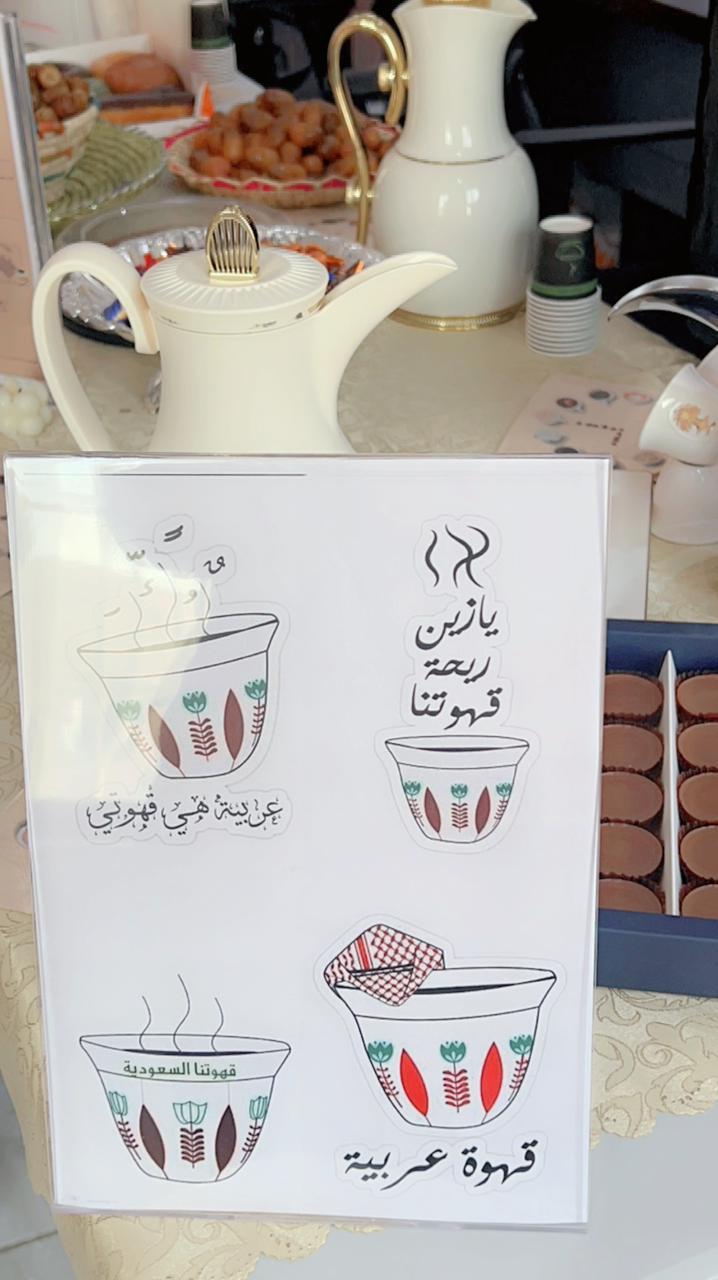 عربية هي قهوتي
يازين
ريحة
قهوتنا
قهوتنا السعودية
قهوة عربية